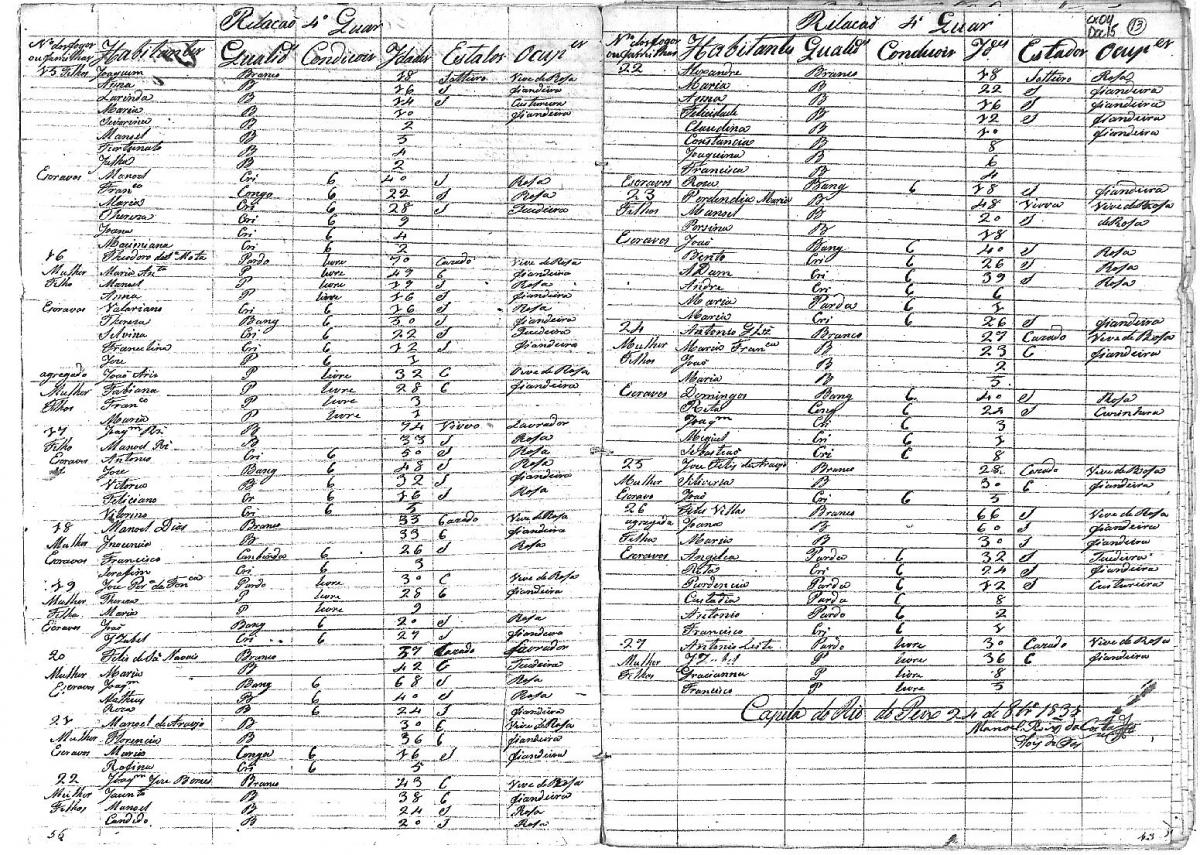 Relacaõ 4º Quar
Nº dos fogos ou familhas Habitantes Qualid Condicois Idades Estatos Ocup es
15 Filhos Joaquim Branco 18 Solteiro Vive de Rosa
Anna B 16 S fiandeira
Laurinda B 14 S Custureira
Maria B 10 fiandeira
Severina B 2
Manoel B 5
Fortunato B 4
Julha B 2
Escravos Manoel Cri 6 40 S Rosa
Franco Congo 6 22 S Rosa
Maria Cri 6 28 S Tecideira
Thereza Cri 6 9
Joana Cri 6 4
Maximiana Cri 2
16 Theodoro da Sª Mota Pardo livre 70 Cazado Vive de Rosa
Mulher Maria Anta P livre 49 C fiandeira
Filho Manoel P livre 19 S Rosa
Anna P livre 16 S fiandeira
Escravos Valariano Cri 6 16 S Rosa
Thereza Bang 6 50 S fiandeira
Silvina Cri 6 22 S Tecideira
Francelina Cri 6 12 S fiandeira
Joze P 1
agregado Joaõ Aris P livre 32 C Vive de Rosa
Mulher Fabiana P livre 28 C fiandeira
Filhos Franco P livre 3
Maria P livre 1
17 Joaqm Ri B 74 Viuvo Lavrador
Filho Manoel Ri B 33 S Rosa
Escravos Antonio Cri 6 50 S Rosa
Joze Bang 6 48 S Rosa
Vitoria B 6 32 S fiandeira
Feliciano Cr 6 16 S Rosa
Vitorino Cri 6 5
18 Manoel Dias Branco 55 Cazado Vive de Rosa
Mulher Inocencia B 33 C fiandeira
Escravos Francisco Cabinda 6 26 S Rosa
Serafim Cri 6 3
19 Joze Pera da Fonca Pardo livre 30 C Vive de Rosa
Mulher Thereza P livre 28 C fiandeira
Filha Maria P livre 9
Escravos Joaõ Bang 6 20 S Rosa
Izabel Cri 6 27 S fiandeira
20 Felis de Sª Navais Branco 57 Cazado Lavrador
Mulher Maria B 42 C Tecideira
Escravos Joaqm Bang 6 68 S Rosa
Matheus B 6 40 S Rosa
Roza B 6 24 S fiandeira
21 Manoel de Araujo B 30 C Vive de Rosa
Mulher Florencia B 36 C fiandeira
Escravos Maria Congo 6 16 S fiandeira
Rofina Cri 6 5
22 Joaqm Joze Borges Branco 43 C Vive de Rosa
Mulher Jacinta B 38 C fiandeira
Filhos Manoel B 24 S Rosa
Candido B 20 S Rosa
56
Relacaõ 4º Quar
CX04
Doc15
13
Nº dos fogos ou familhas Habitantes Qualid Condicois Id es Estados Ocup es
22 Alexandre Branco 18 Solteiro Rosa
Maria B 22 S fiandeira
Anna B 16 S fiandeira
Felicidade B 12 S fiandeira
Claudina B 10 fiandeira
Constancia B 8
Joaquina B 6
Francisca B 4
Escravos Roza Bang C 18 S fiandeira
23 Pordencia Maria B 48 Viuva Vive de Rosa
Filhos Manoel B 20 S de Rosa
Porsina B 18
Escravos Joaõ Bang C 40 S Rosa
Bento Cri C 26 S Rosa
Adam Cri C 39 S Rosa
Andre Cri C 6
Maria Parda C 1
Maria Cri C 26 S fiandeira
24 Antonio Branco 27 Cazado Vive de Rosa
Mulher Maria Franca B 23 C fiandeira
Filhos Joaõ B 2
Maria B 5
Escravos Domingos Bang C 40 S Rosa
Rita Cong C 24 S
Joaqm Cri C 3
Miguel Cri C 1
Sebastiaõ Cri C 8
25 Joze Felis de Araujo Branco 28 Cazado Vive de Rosa
Mulher B 30 C fiandeira
Escravo Joaõ Cri C 5
26 Branco 66 S Vive de Rosa
agregada Joana B 60 S fiandeira
Filha Maria B 30 S fiandeira
Escravos Angelica Parda C 32 S Tecideira
Rita Cri C 24 S fiandeira
Pordencia Parda C 12 S Custureira
Custadia Parda C 8
Antonio Pardo C 2
Francisco Cri C 1
27 Antonio Leite Pardo livre 30 Cazado Vive de Rosa
Mulher P livre 36 C fiandeira
Filhos Gracianna P livre 8
Francisco P livre 5
Capela do Rio do Peixe 24 de 8bro 1835
Manoel da Costa
Juis de Pas
43